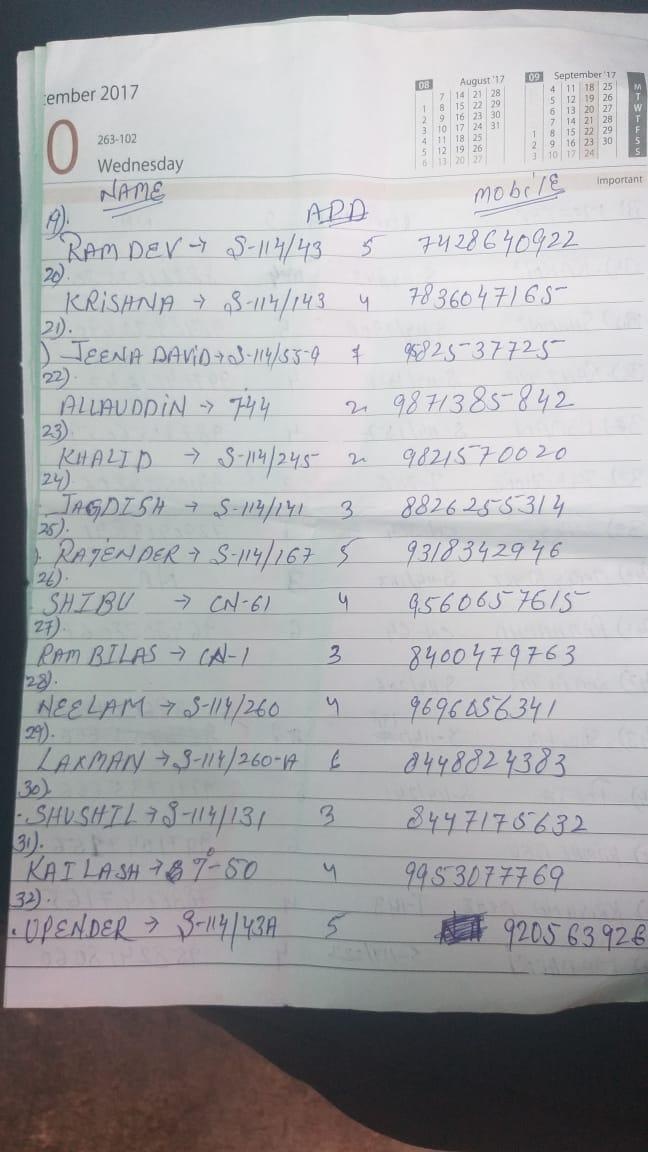 tember 2017
0 263-102
Wednesday
08 August '17
7 14 21 28
1 8 15 22 29
2 9 16 23 30
3 10 17 24 31
4 11 18 25
5 12 19 26
6 13 20 27
09 September '17
4 11 18 25 M
5 12 19 26 T
6 13 20 27 W
7 14 21 28 T
1 8 15 22 29 F
2 9 16 23 30 S
3 10 17 24 S
Important
NAME ADD MOBILE
19).
RAM DEV → S-114/43 5 7428640922
20).
KRISHNA → S-114/143 4 7836047165
21).
) JEENA DAVID → S-114/55-9 9582537725
22).
ALLAUDDIN → 744 2 9871385842
23).
KHALID → S-114/245 2 9821570020
24)
JAGDISH → S-114/141 3 8826255314
25).
). RAJENDER → S-114/167 5 9318342946
26).
SHIBU → CN-61 4 9560657615
27).
RAM BILAS → CN-1 3 8400479763
28).
NEELAM → S-114/260 4 9696056341
29).
LAXMAN → S-114/260-A 6 8448824383
30).
. SHUSHIL → S-114/131 3 8447175632
31).
KAILASH → 7-50 4 9953077769
32).
. UPENDER → S-114/43A 5 920563926